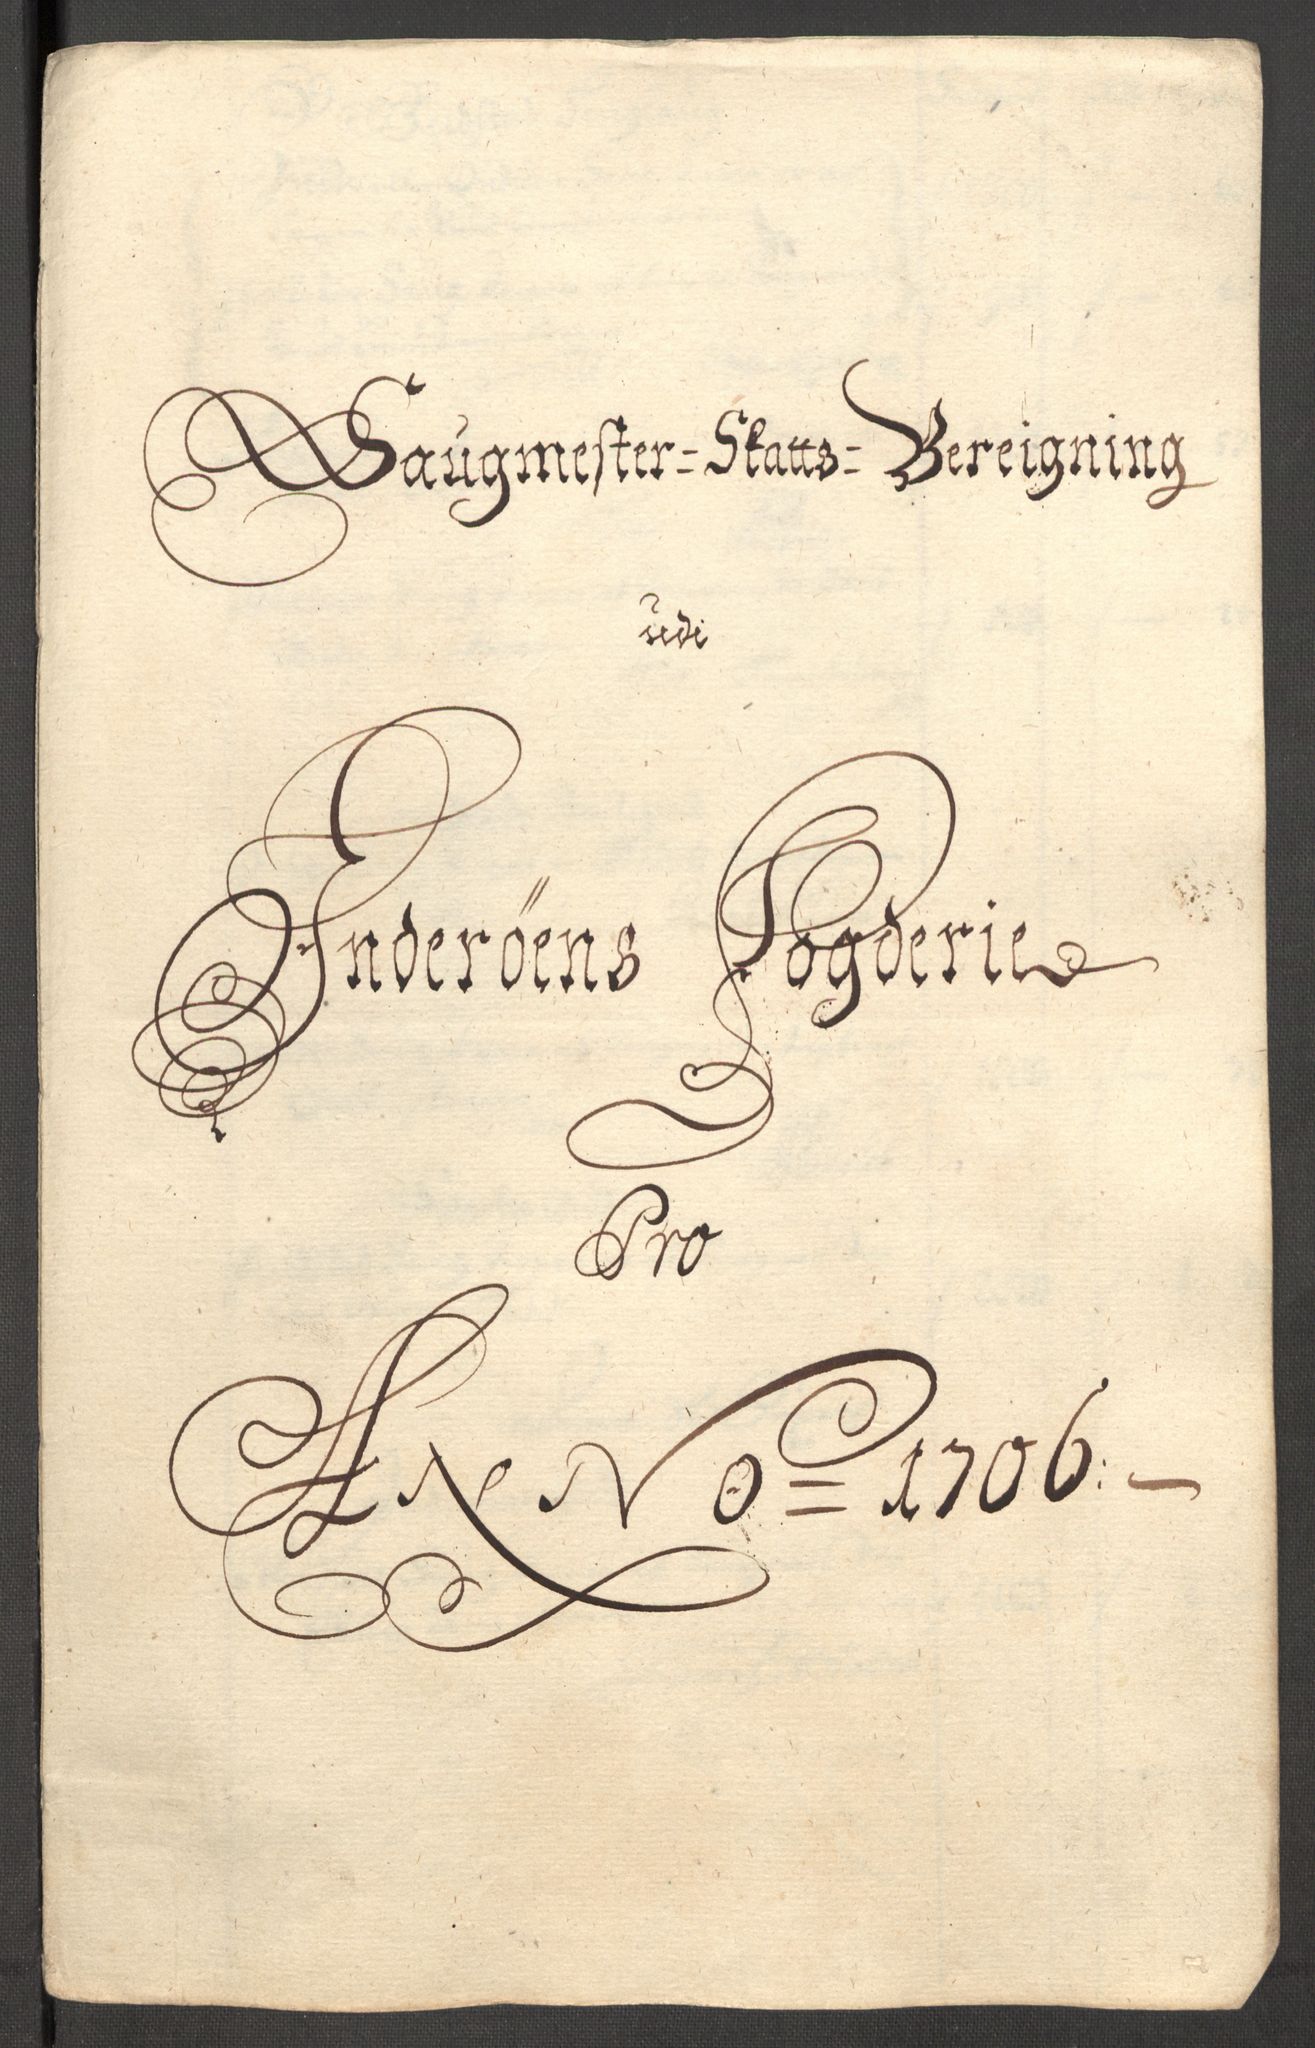 Saugmester-Skatts-Bereigning
udi
Inderöens Fogderie
Pro
ANNO = 1706. —